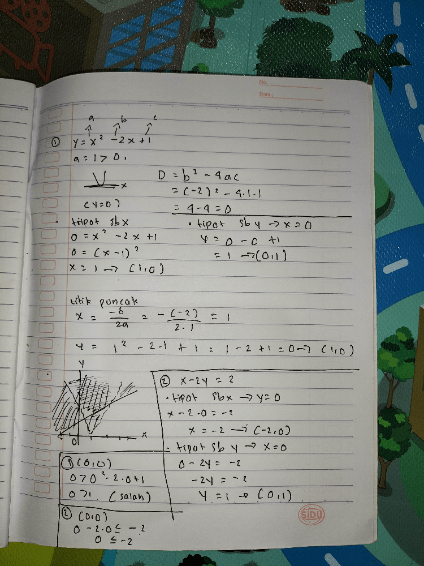 a b c
① y = x² - 2x + 1
a = 1 > 0,
x
D = b² - 4ac
= (-2)² - 4.1.1
= 4 - 4 = 0
(y=0)
• tipot sbx
0 = x² - 2x + 1
0 = (x-1)²
x = 1 → (1,0)
• tipot sb y → x=0
y = 0 - 0 + 1
= 1 → (0,1)
titik puncak
x = -b/2a = -(-2)/2.1 = 1
y = 1² - 2.1 + 1 = 1 - 2 + 1 = 0 → (1,0)
y
x
0
② x - 2y = 2
• tipot sbx → y=0
x - 2.0 = -2
x = -2 → (-2,0)
- tipot sb y → x=0
0 - 2y = -2
-2y = -2
y = 1 → (0,1)
① (0,0)
0 > 0² - 2.0+1
0 > 1 (salah)
② (0,0)
0 - 2.0 ≤ -2
0 ≤ -2
SIDU